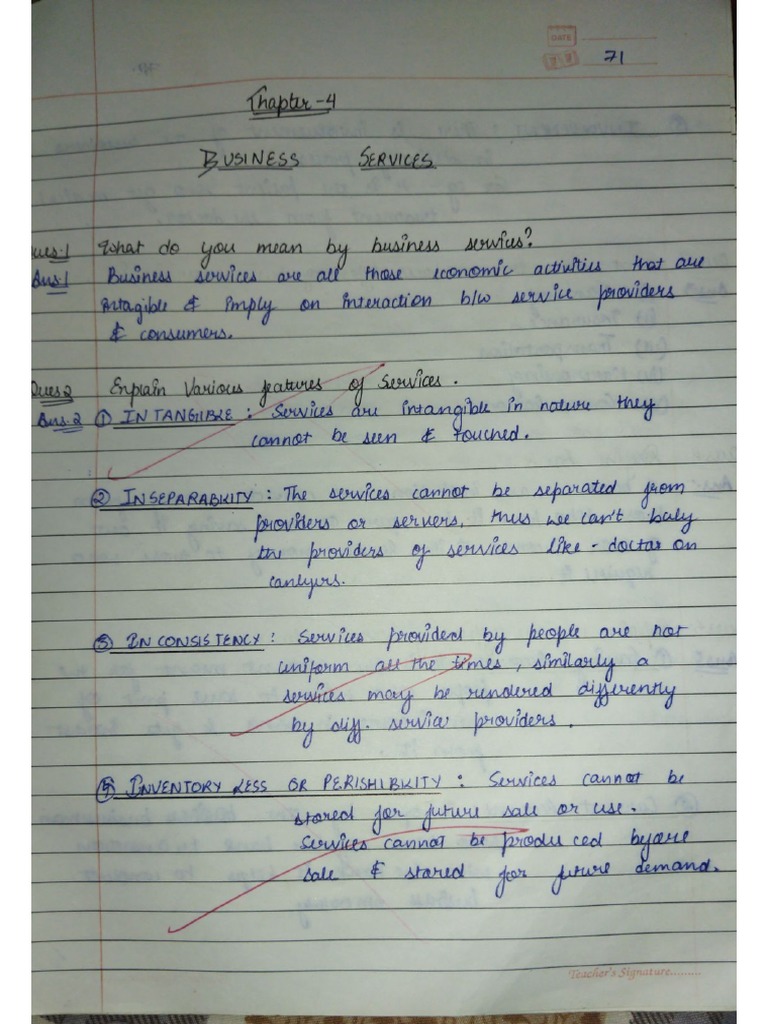 DATE
71
Chapter-4
BUSINESS SERVICES
Ques.1 What do you mean by business services?
Ans.1 Business services are all those economic activities that are
intagible & imply on interaction b/w service providers
& consumers.
Ques.2 Explain Various features of Services.
Ans.2 ① INTANGIBLE : Services are intangible in nature they
cannot be seen & touched.
② INSEPARABILITY : The services cannot be separated from
providers or servers, thus we can't
the providers of services like - doctor on
③ INCONSISTENCY : Services provided by people are not
uniform all the times, similarly a
services may be rendered differently
by diff. service providers.
④ INVENTORY LESS OR PERISHIBILITY : Services cannot be
stored for future sale or use.
Services cannot be produced
sale & stored for future demand.
Teacher's Signature.........